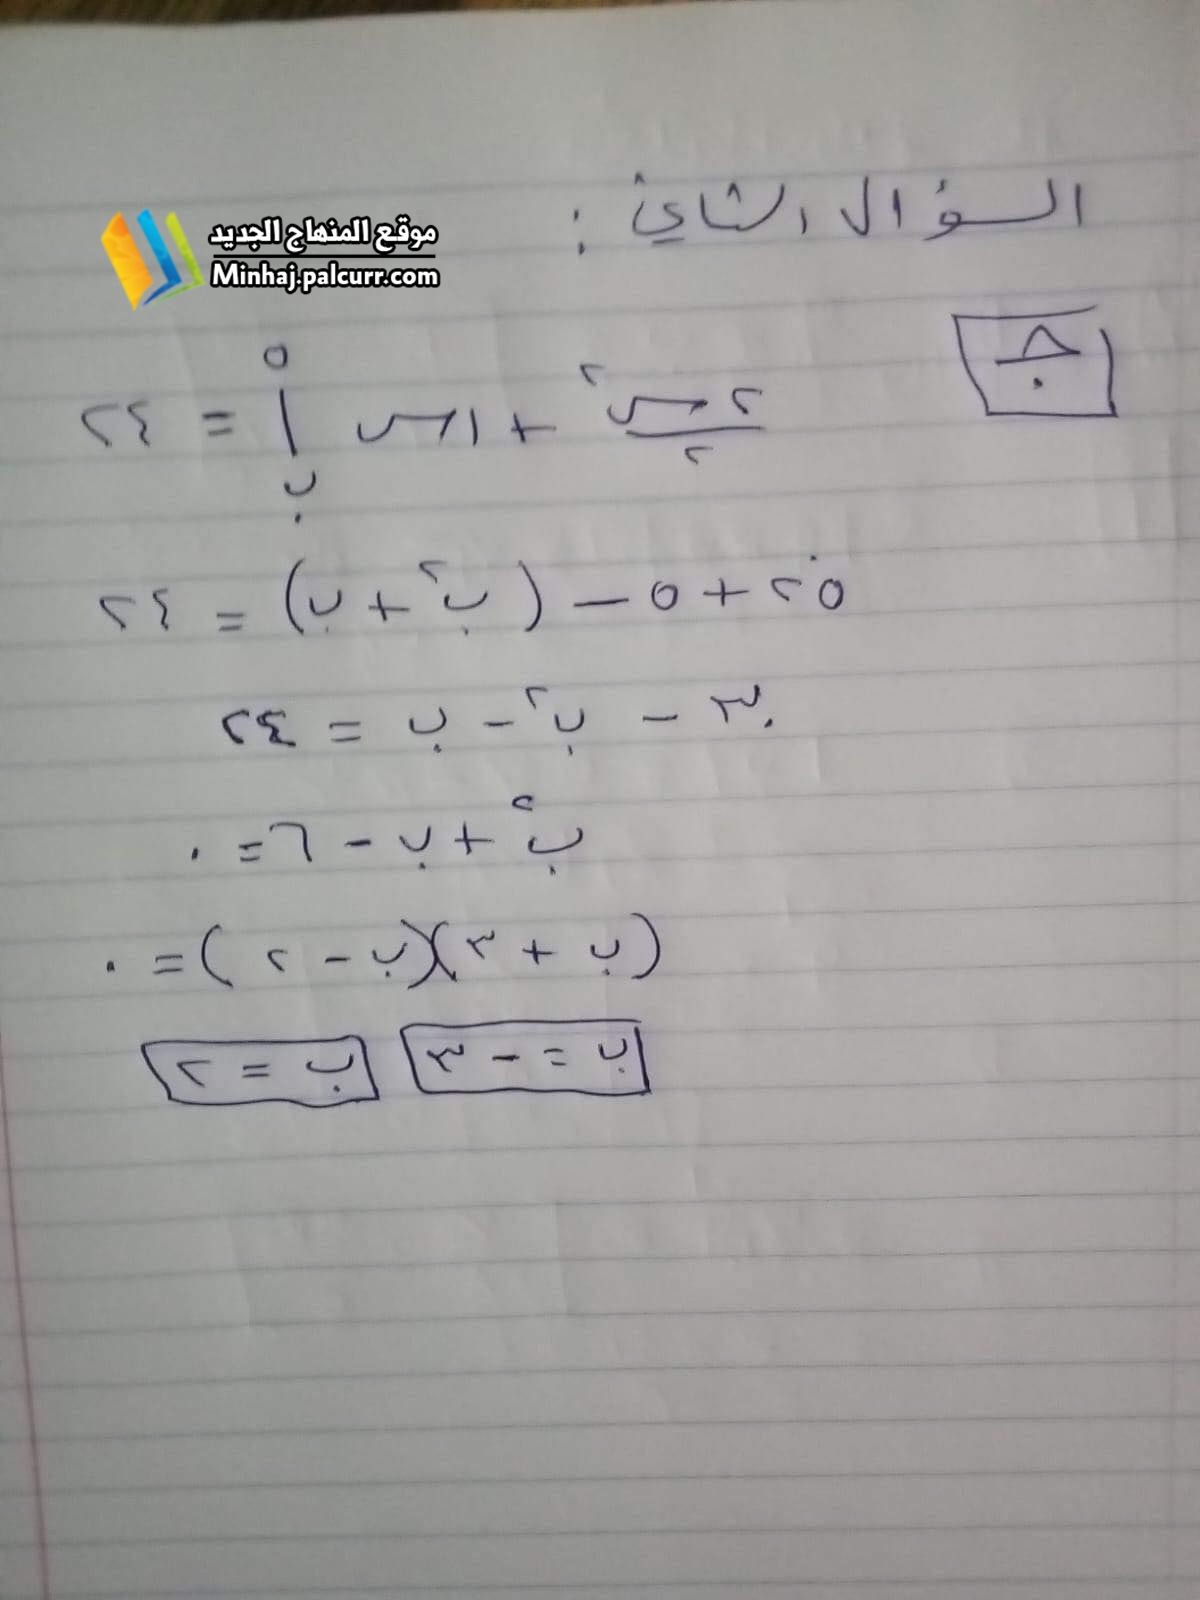 السؤال الثاني :
موقع المنهاج الجديد
Minhaj.palcurr.com
ج
٢س^٢/٢ + ١س |_ب^٥ = ٢٤
٢٥ + ٥ - (ب^٢ + ب) = ٢٤
٣٠ - ب^٢ - ب = ٢٤
ب^٢ + ب - ٦ = ٠
(ب + ٣)(ب - ٢) = ٠
ب = - ٣ ب = ٢